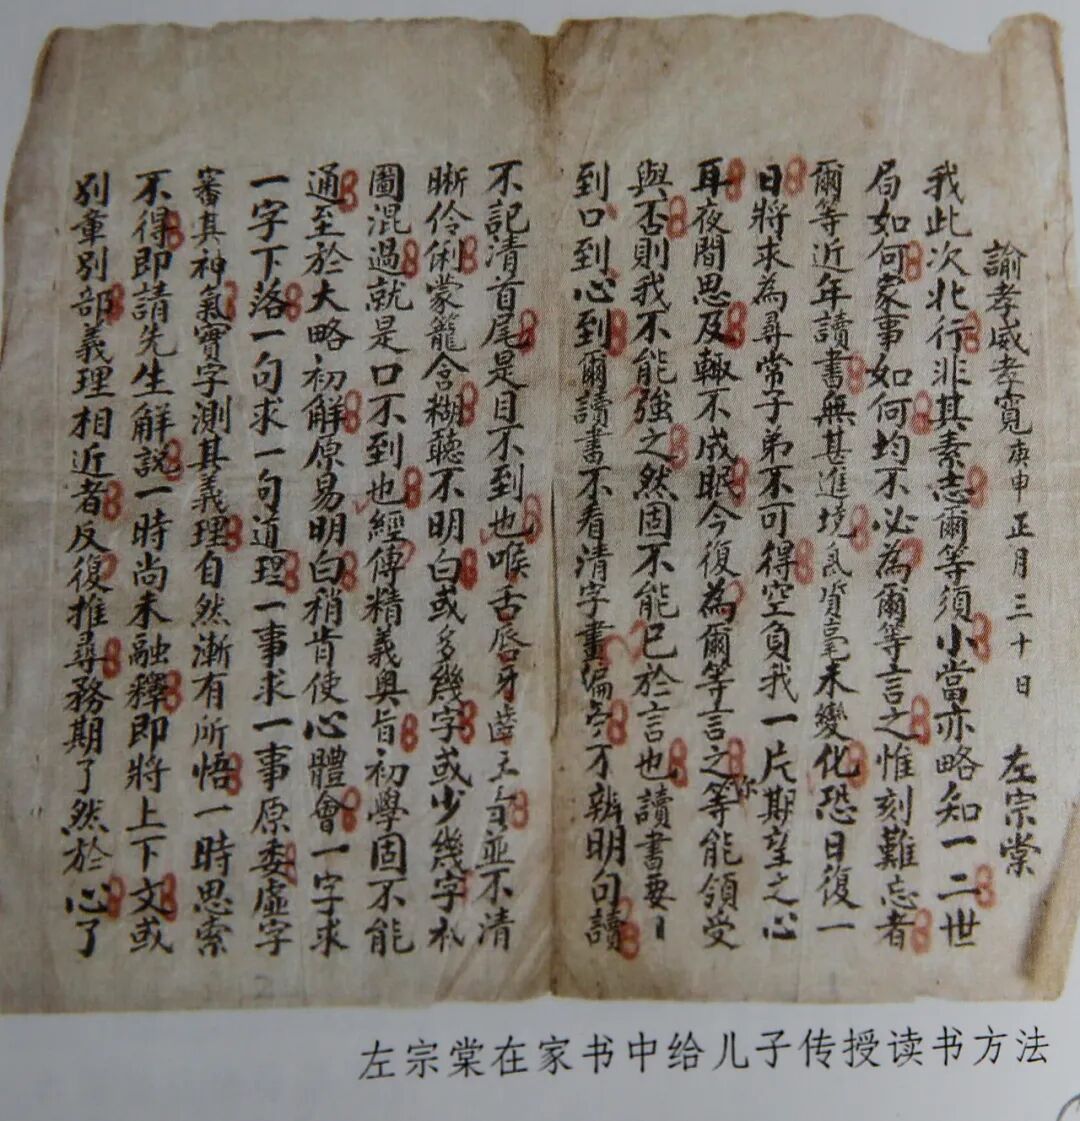 諭孝威孝寬庚申正月三十日 左宗棠
我此次北行非其素志爾等須小當亦略知一二世
局如何家事如何均不必為爾等言之惟刻難忘者
爾等近年讀書無甚進境氣質毫未變化恐日復一
日將求為尋常子弟不可得空負我一片期望之心
耳夜間思及輒不成眠今復為爾等言之爾等能領受
與否則我不能強之然固不能已於言也讀書要目
到口到心到爾讀書不看清字畫偏旁不辨明句讀
不記清首尾是目不到也喉舌唇牙齒五音並不清
晰伶俐蒙籠含糊聽不明白或多幾字或少幾字祇
圖混過就是口不到也經傳精義奧旨初學固不能
通至於大略初解原易明白稍肯使心體會一字求
一字下落一句求一句道理一事求一事原委虛字
審其神氣實字測其義理自然漸有所悟一時思索
不得即請先生解說一時尚未融釋即將上下文或
別章別部義理相近者反復推尋務期了然於心了
左宗棠在家书中给儿子传授读书方法